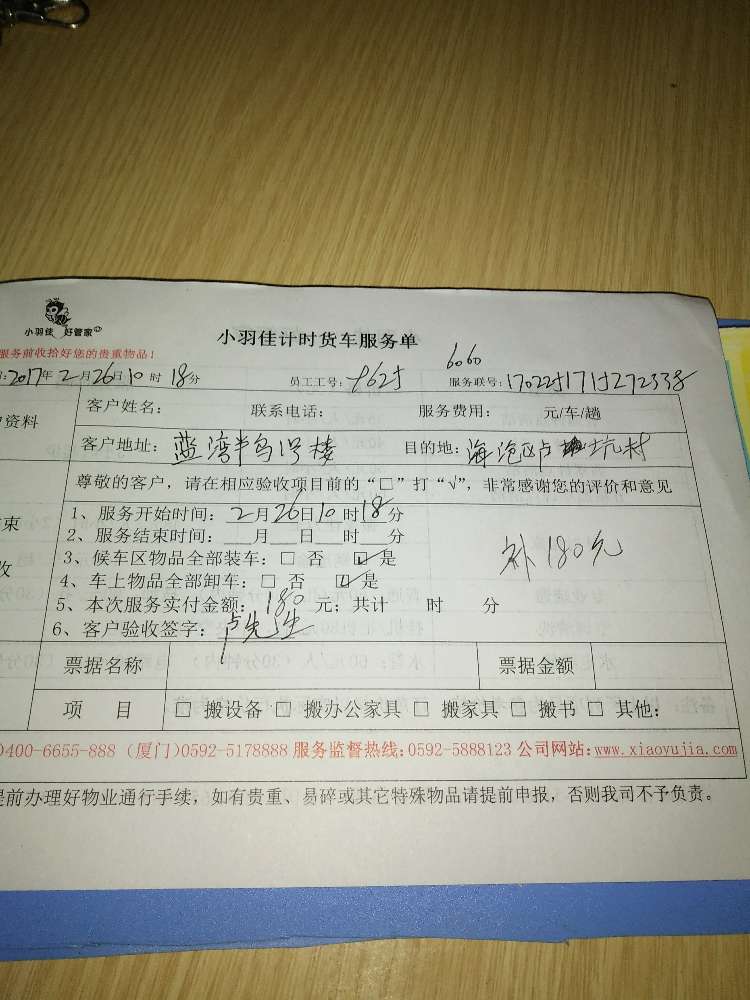 小羽佳 好管家
小羽佳计时货车服务单
服务前收拾好您的贵重物品！
6060
:2017年2月26日10时18分 员工工号: 服务联号:
户资料 客户姓名: 联系电话: 服务费用: 元/车/趟
客户地址: 蓝湾半岛1号楼 目的地: 海沧区卢坑村
尊敬的客户，请在相应验收项目前的“□”打“√”，非常感谢您的评价和意见
束
收
1、服务开始时间: 2月26日10时18分
2、服务结束时间: __月__日__时__分
3、候车区物品全部装车: □ 否 ☑是
补180元
4、车上物品全部卸车: □ 否 ☑是
5、本次服务实付金额: 180元；共计 时 分
6、客户验收签字: 卢先生
票据名称 票据金额
项 目 □ 搬设备 □ 搬办公家具 □ 搬家具 □ 搬书 □ 其他:
)400-6655-888 (厦门)0592-5178888 服务监督热线:0592-5888123 公司网站:www.xiaoyujia.com
提前办理好物业通行手续，如有贵重、易碎或其它特殊物品请提前申报，否则我司不予负责。